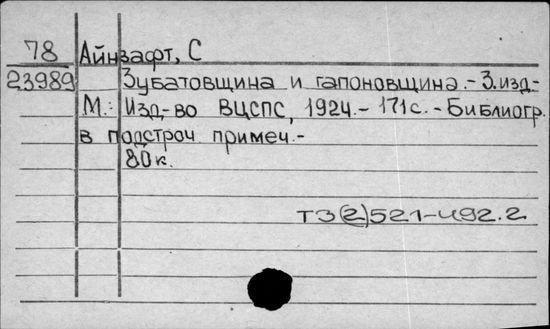 78 Айнзафт, С
23989 Зубатовщина и гапоновщина.- 3.изд.-
М.: Изд-во ВЦСПС, 1924.- 171с.- Библиогр.
в подстроч примеч.-
80к.
Т3(2)521-492.2